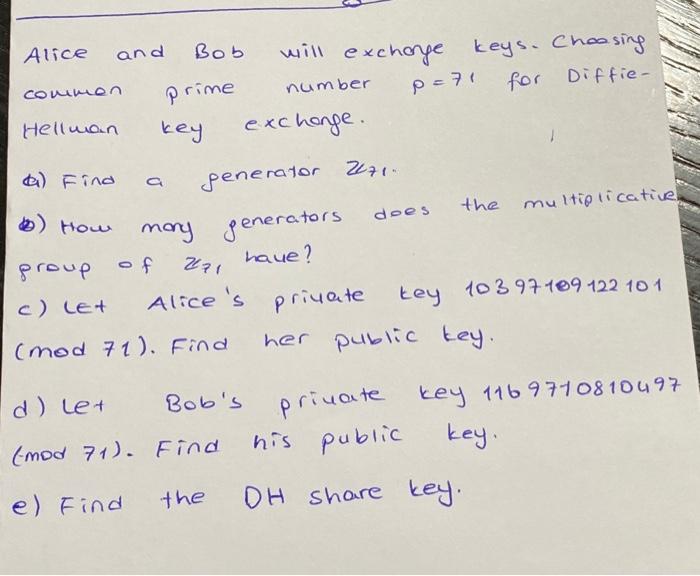 Alice and Bob will exchange keys. Choosing
common prime number p = 71 for Diffie-
Hellman key exchange.
a) Find a generator ℤ71.
b) How many generators does the multiplicative
group of ℤ71 have?
c) Let Alice's private key 10397109122101
(mod 71). Find her public key.
d) Let Bob's private key 1169710810497
(mod 71). Find his public key.
e) Find the DH share key.